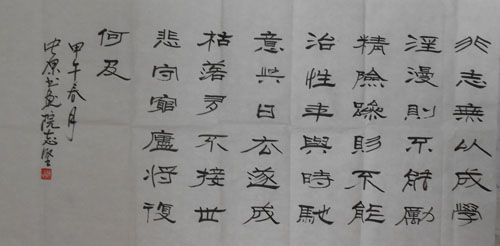 非志無以成學
淫漫則不能勵
精險躁則不能
治性年與時馳
意與日去遂成
枯落多不接世
悲守窮廬將復
何及
甲午春月
中原書畫院志堅